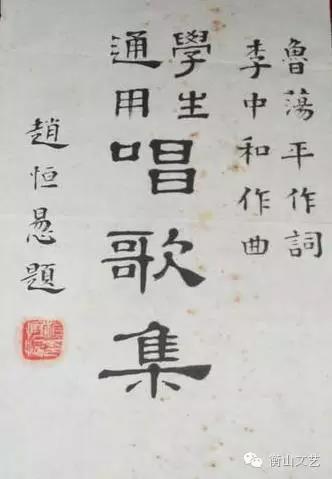 魯蕩平作詞
李中和作曲
學生
通用
唱歌集
趙恒惖題
衡山文艺